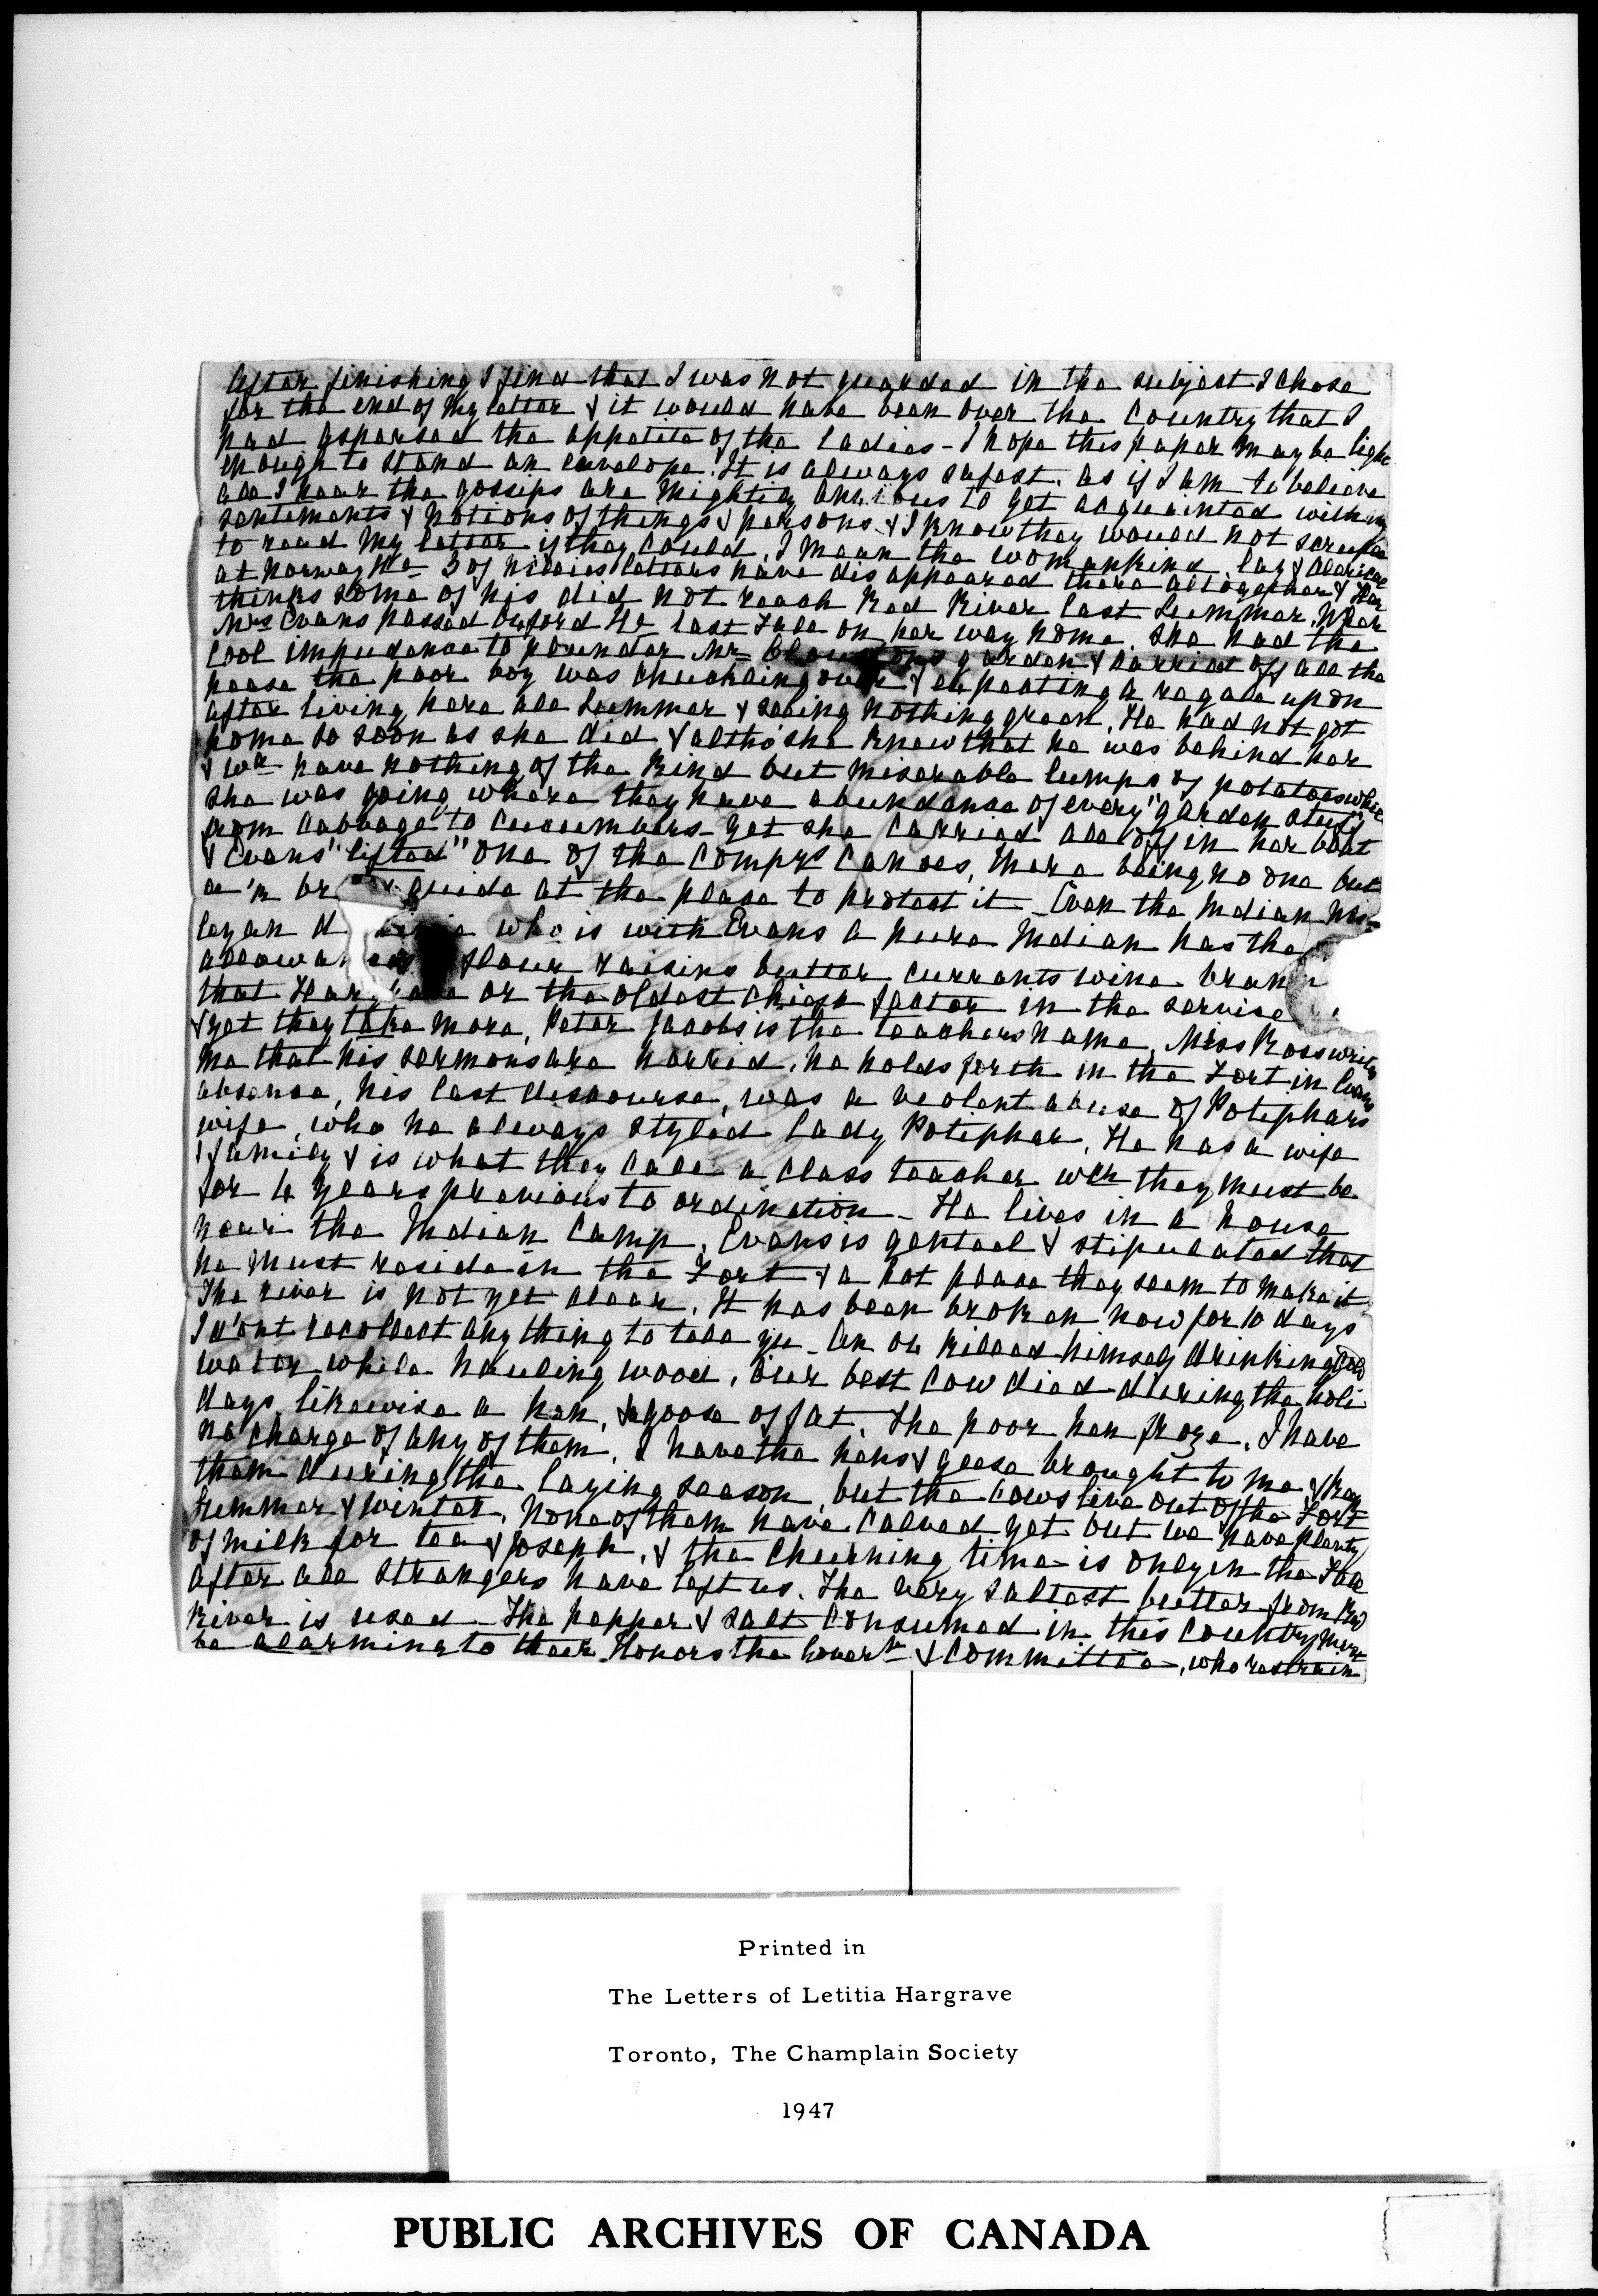 After finishing I find that I was not guarded in the subject I chose
for the end of my letter & it would have been over the country that I
had aspersed the appetite of the ladies - I hope this paper may be light
enough to stand an envelope. It is always safest, as if I am to believe
all I hear the gossips are mighty anxious to get acquainted with my
sentiments & notions of things & persons & I know they would not scruple
to read my letter if they could. I mean the womankind, lay & clerical
at Norway He 3 of Willies letters have disappeared there altogether & Har
thinks some of his did not reach Red River last Summer. When
Mrs Evans passed Oxford He last Fall on her way home she had the
cool impudence to plunder Mr Cloustons garden & carried off all the
pease the poor boy was chuckling over & expecting a regale upon
after living here all Summer & seeing nothing green. He had not got
home so soon as she did & altho' she knew that he was behind her
& wd have nothing of the kind but miserable lumps of potatoes while
she was going where they have abundance of every "garden stuff
from cabbage" to cucumbers - yet she carried all off in her boat
& Evans "lifted" one of the Compys Canoes, there being no one but
guide at the place to protect it - Even the Indian Wes
leyan who is with Evans a pure Indian has the
flour raisins butter currants wine
that or the oldest chief factor in the service
& yet they take more, Peter Jacobs is the teachers name, Miss Ross writes
me that his sermons are horrid, he holds forth in the Fort in Evans
absence, his last discourse, was a violent abuse of Potiphars
wife, who he always styled Lady Potiphar, He has a wife
& family & is what they call a class teacher wch they must be
for 4 years previous to ordination - He lives in a house
near the Indian Camp, Evans is genteel & stipulated that
he must reside in the Fort & a hot place they seem to make it
The river is not yet clear. It has been broken now for 10 days
I d'ont recollect any thing to tell yu - An ox killed himself drinking cold
water while hauling wood, Our best cow died during the holi
days, likewise a hen, & goose of fat, The poor hen froze. I have
no charge of any of them, I have the hens & geese brought to me & keep
them during the laying season, but the cows live out of the Fort
Summer & winter, None of them have calved yet but we have plenty
of milk for tea & Joseph, & the churning time is only in the Fall
after all strangers have left us. The very saltest butter from Red
River is used - The pepper & salt consumed in this country must
be alarming to their Honors the Governr & Committee, who restrain
Printed in
The Letters of Letitia Hargrave
Toronto, The Champlain Society
1947
PUBLIC ARCHIVES OF CANADA